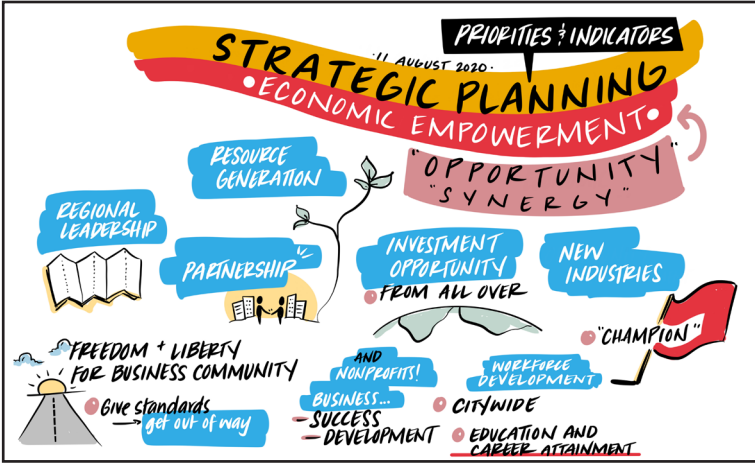 PRIORITIES & INDICATORS
·11 AUGUST 2020·
STRATEGIC PLANNING
•ECONOMIC EMPOWERMENT•
"OPPORTUNITY"
"SYNERGY"
RESOURCE
GENERATION
REGIONAL
LEADERSHIP
PARTNERSHIP
INVESTMENT
OPPORTUNITY
FROM ALL OVER
NEW
INDUSTRIES
"CHAMPION"
FREEDOM + LIBERTY
FOR BUSINESS COMMUNITY
Give standards
→ get out of way
AND
NONPROFITS!
BUSINESS...
- SUCCESS
- DEVELOPMENT
WORKFORCE
DEVELOPMENT
CITYWIDE
EDUCATION AND
CAREER ATTAINMENT